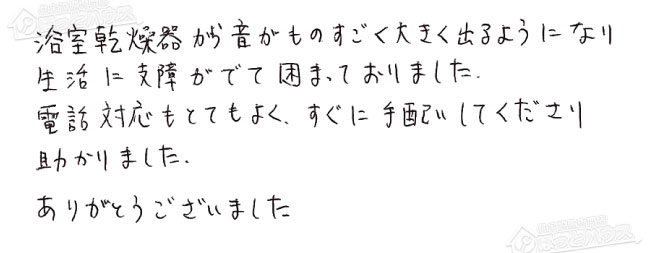 浴室乾燥器から音がものすごく大きく出るようになり
生活に支障がでて困まっておりました.
電話対応もとてもよく、すぐに手配いしてくださり
助かりました.
ありがとうございました